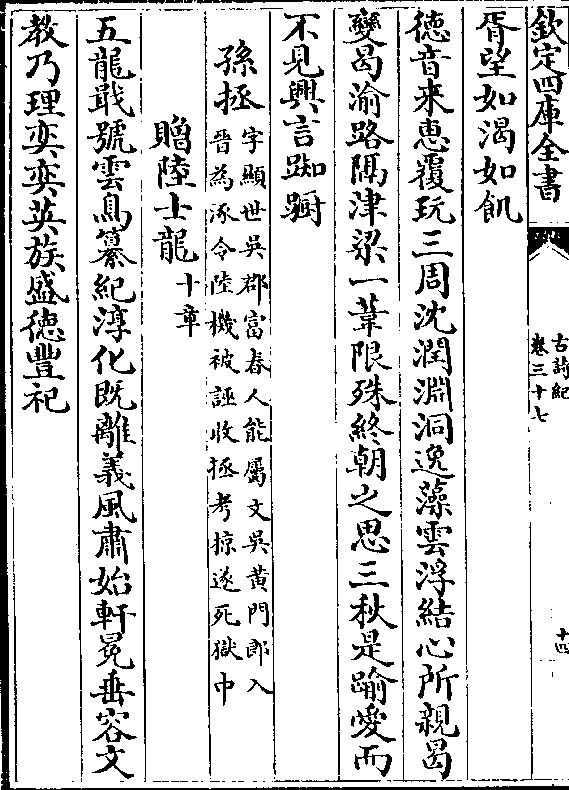 欽定四庫全書
古詩紀
卷三十七
十四
胥望如渴如飢
德音来恵覆玩三周沈潤淵洞逸藻雲浮結心所親曷
變曷渝路隔津梁一葦限殊終朝之思三秋是踰愛而
不見興言踟蹰
孫拯
字顯世吳郡富春人能屬文吳黄門郎入
晉為涿令陸機被誣收拯考掠遂死獄中
贈陸士龍十章
五龍戢號雲鳥纂紀淳化既離義風肅始軒冕垂容文
教乃理奕奕英族盛徳豐祀